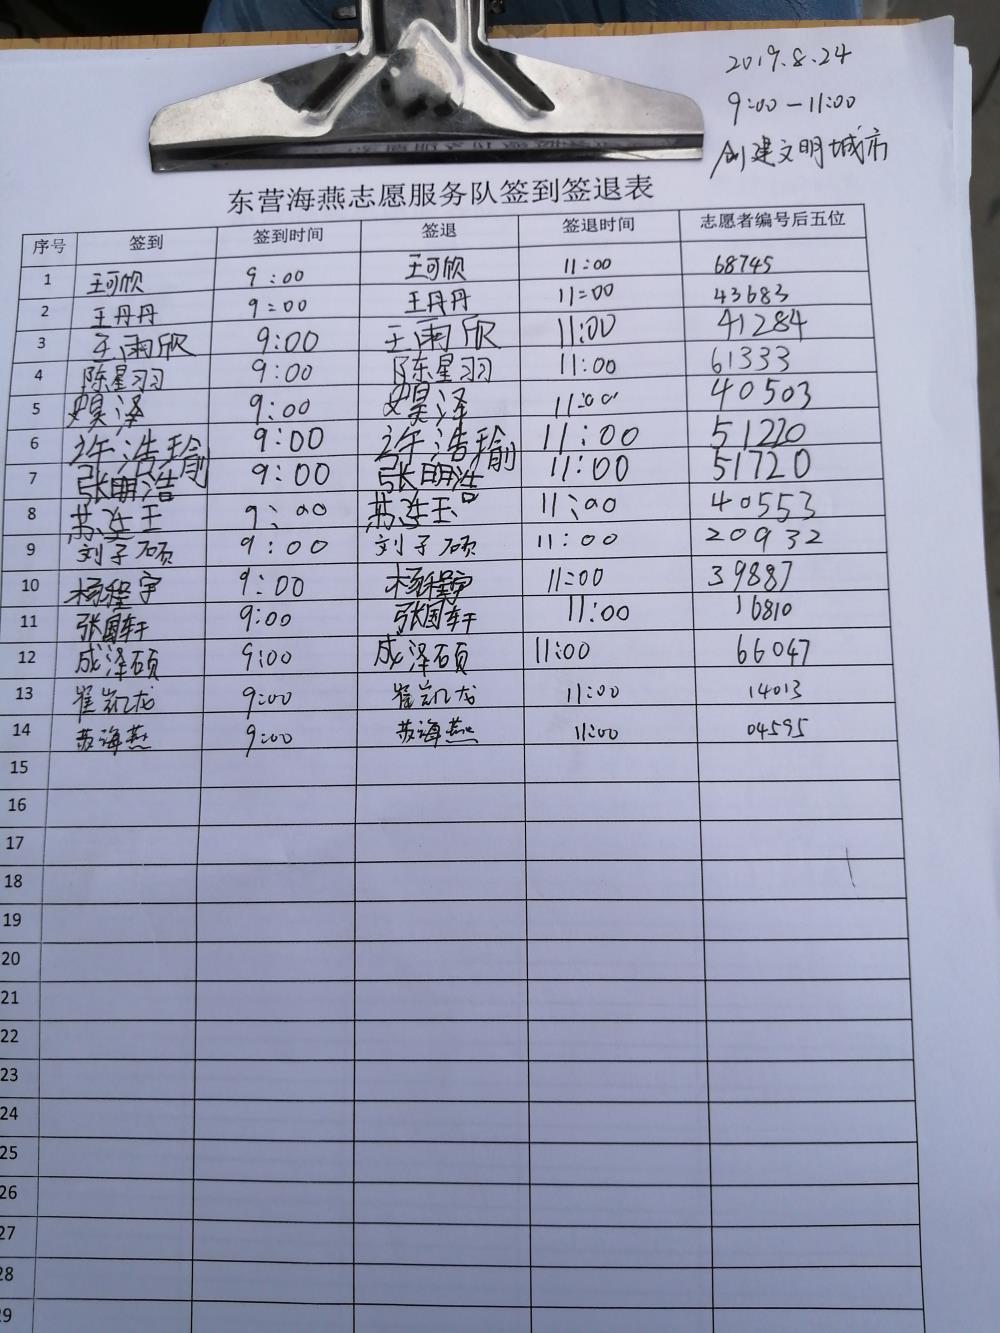 2019.8.24
9:00-11:00
创建文明城市
东营海燕志愿服务队签到签退表
序号 签到 签到时间 签退 签退时间 志愿者编号后五位
1 王可欣 9:00 王可欣 11:00 68745
2 王丹丹 9:00 王丹丹 11:00 43683
3 王雨欣 9:00 王雨欣 11:00 41284
4 陈星羽 9:00 陈星羽 11:00 61333
5 昊泽 9:00 昊泽 11:00 40503
6 许浩瑜 9:00 许浩瑜 11:00 51220
7 张明浩 9:00 张明浩 11:00 51720
8 苏连玉 9:00 苏连玉 11:00 40553
9 刘子硕 9:00 刘子硕 11:00 20932
10 杨程宇 9:00 杨程宇 11:00 39887
11 张国轩 9:00 张国轩 11:00 16810
12 成泽硕 9:00 成泽硕 11:00 66047
13 崔凯龙 9:00 崔凯龙 11:00 14013
14 苏海燕 9:00 苏海燕 11:00 04595
15
16
17
18
19
20
21
22
23
24
25
26
27
28
29